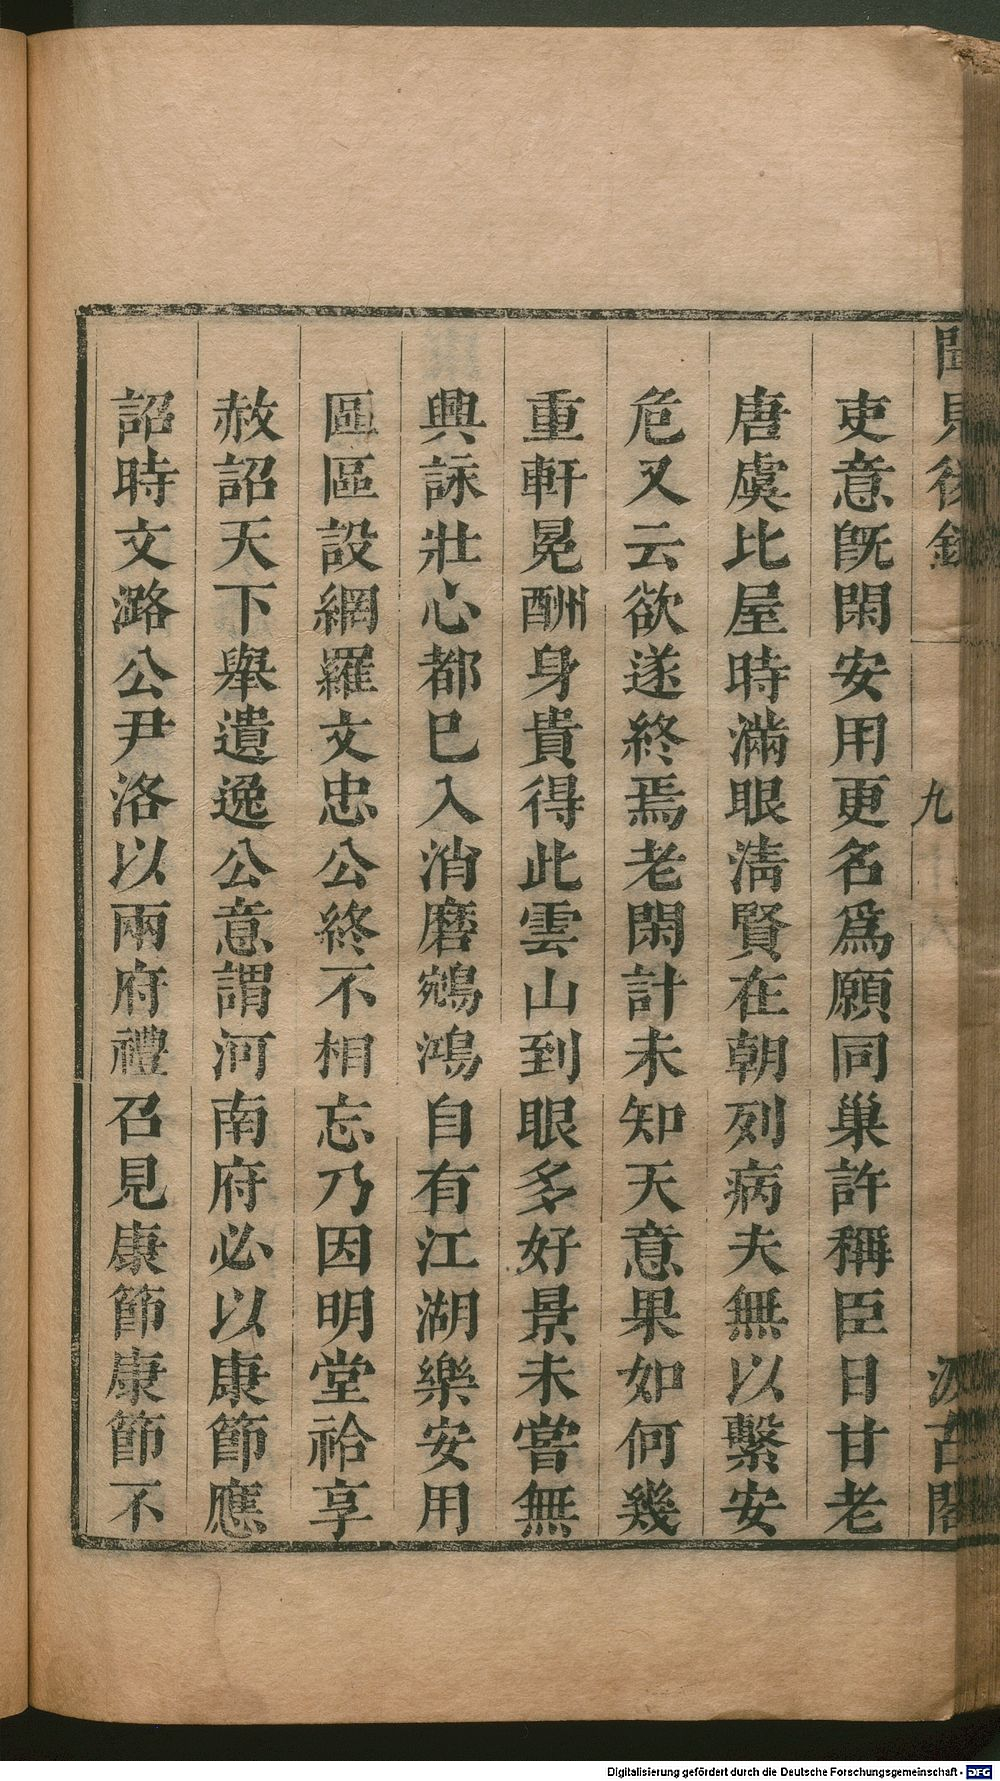 聞見後錄
九
汲古閣
吏意旣閑安用更名爲願同巢許稱臣日甘老
唐虞比屋時滿眼淸賢在朝列病夫無以繫安
危又云欲遂終焉老閑計未知天意果如何幾
重軒冕酬身貴得此雲山到眼多好景未嘗無
興詠壯心都已入消磨鵷鴻自有江湖樂安用
區區設網羅文忠公終不相忘乃因明堂祫享
赦詔天下舉遺逸公意謂河南府必以康節應
詔時文潞公尹洛以兩府禮召見康節康節不
Digitalisierung gefördert durch die Deutsche Forschungsgemeinschaft - DFG